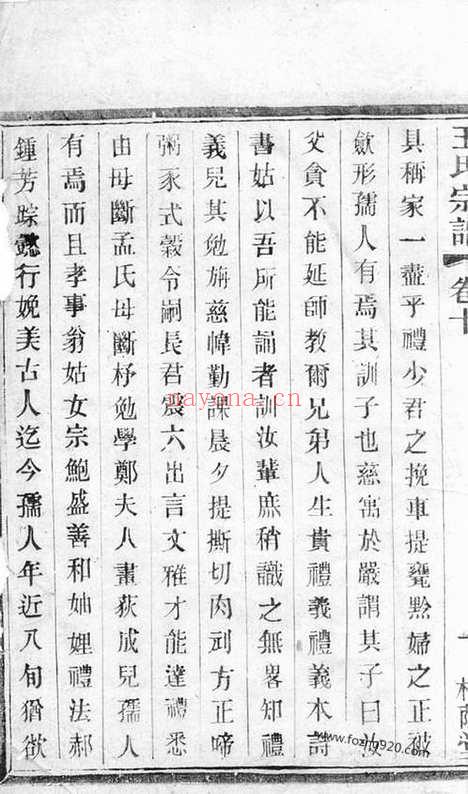 王氏宗譜 卷十
具稱家一盡乎禮少君之挽車提甕黔婦之正被
歛形孺人有焉其訓子也慈寓於嚴謂其子曰汝
父貧不能延師教爾兄弟人生貴禮義禮義本詩
書姑以吾所能誦者訓汝輩庶稍識之無畧知禮
義兒其勉旃慈幃勤課晨夕提撕切肉刲方正啼
粥豕式穀令嗣長君宸六出言文雅才能達禮悉
由母斷孟氏母斷杼勉學鄭夫人畫荻成兒孺人
有焉而且孝事翁姑女宗鮑盛善和妯娌禮法郝
鍾芳踪懿行娩美古人迄今孺人年近八旬猶欲
nayona.cn
www.fozhu920.com